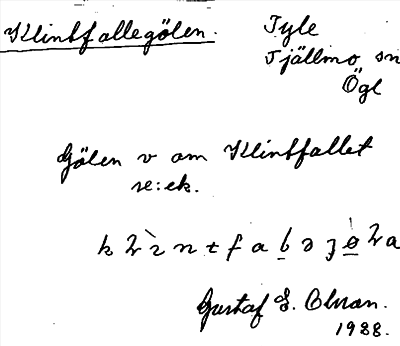 Klintfallegölen.
Tyle
Tjällmo sn
Ögl
Gölen v om Klintfallet
se: ek.
Gustaf E. Olson.
1988.